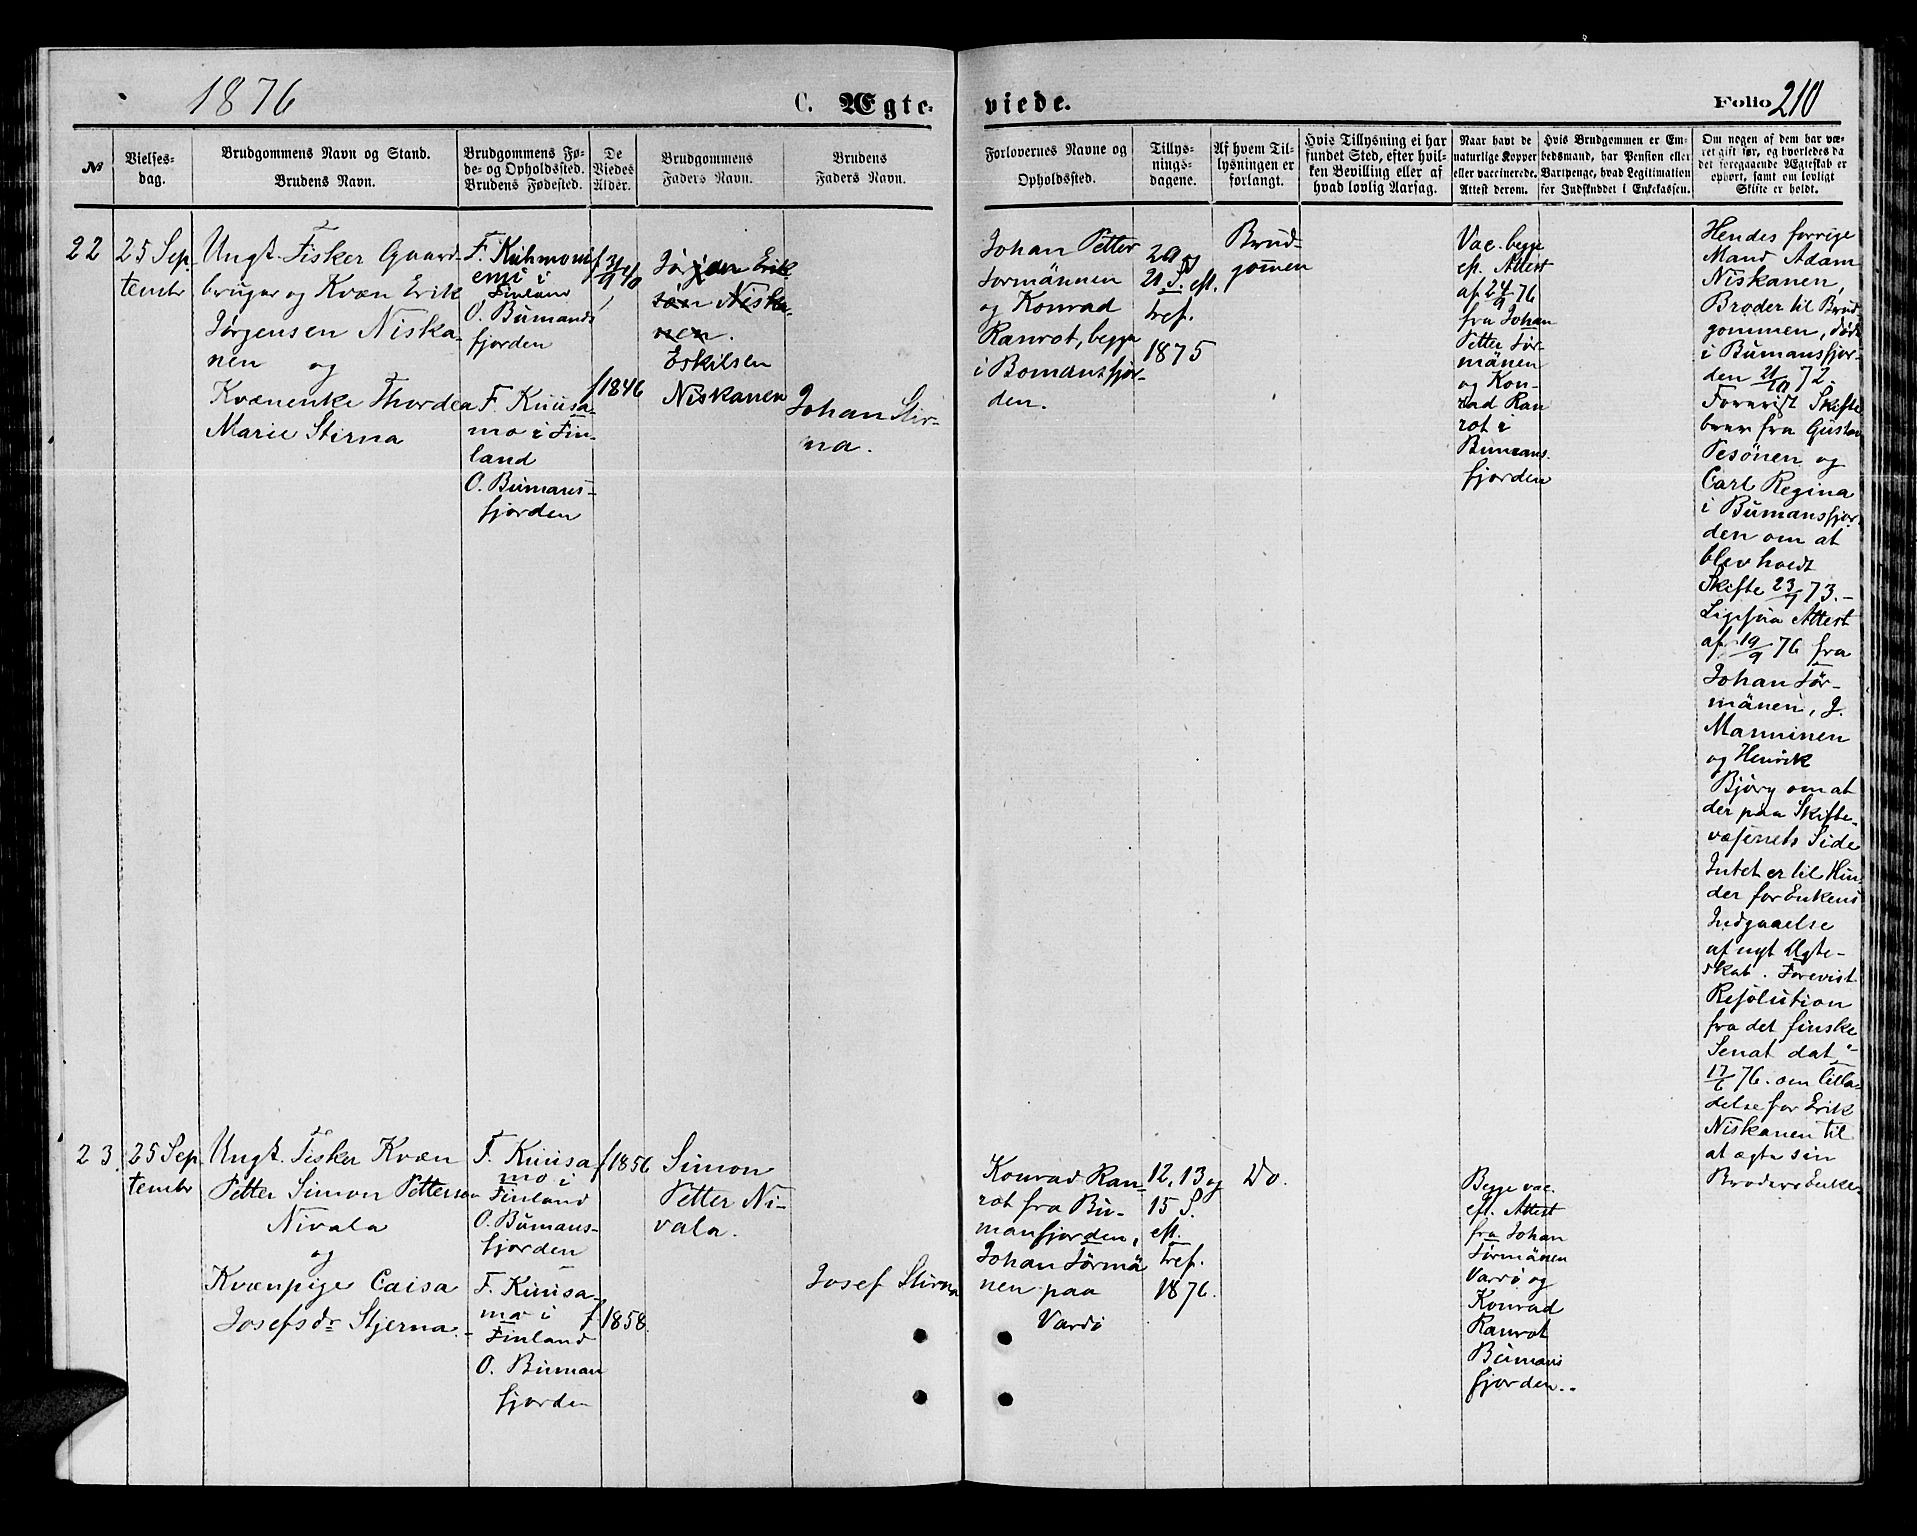 1876
C. Ægte-
viede.
Folio 210
№
Vielses-
dag.
Brudgommens Navn og Stand.
Brudens Navn.
Brudgommens Fø-
de- og Opholdssted.
Brudens Fødested.
De
Viedes
Alder.
Brudgommens
Faders Navn.
Brudens
Faders Navn.
Forlovernes Navne og
Opholdssted.
Tillys-
nings-
dagene.
Af hvem Til-
lysningen er
forlangt.
Hvis Tillysning ei har
fundet Sted, efter hvil-
ken Bevilling eller af
hvad lovlig Aarsag.
Naar havt de
naturlige Kopper
eller vaccinerede.
Attest derom.
Hvis Brudgommen er Em-
bedsmand, har Pension eller
Vartpenge, hvad Legitimation
for Indskuddet i Enkekassen.
Om nogen af dem har væ-
ret gift før, og hvorledes da
det foregaaende Ægteskab er
ophørt, samt om lovligt
Skifte er holdt.
22
25 Sep
tembr
Ungk. Fisker Gaard-
bruger og Kvæn Erik
Jørgensen Niska-
nen og
Kvænenke Thordea
Marie Stirna
F. Kuhmoni
emi i
Finland
O. Bumands
fjorden
F. Kuusa-
mo i Fin-
land
O. Bumans-
fjorden
f 31/9 40
f 1846
Jørgen Erik
sen Niska-
nen.
Eskilsen
Niskanen
Johan Stir-
na.
Johan Petter
Tormännen
og Konrad
Ranrot, begge
i Bomansfjor-
den.
20 og
21 S. eft.
Tref.
1875
Brud-
gommen
Vac. begge
eft. Attest
af 24/9 76
fra Johan
Petter Tør-
mänen
og Kon-
rad Ran
rot i
Bumans-
fjorden
Hendes forrige
Mand Adam
Niskanen,
Broder til Brud-
gommen, døde
i Bumansfjor-
den 21/10 72.
Forevist Skifte
brev fra Gustav
Pesönen og
Carl Regina
i Bumansfjor-
den om at
blev holdt
Skifte 23/7 73.-
Ligesaa Attest
af 19/9 76 fra
Johan Tør-
mänen, J.
Manninen
og Henrik
Bjørg om at
der paa Skifte-
væsenets Side
Intet er til Hin-
der for Enkens
Indgaaelse
af nyt Ægte-
skab. Forevist
Resolution
fra det finske
Senat dat.
17/6 76. om Tilla-
delse for Erik
Niskanen til
at ægte sin
Broders Enke.
23.
25 Sep
tembr
Ungk. Fisker Kvæn
Petter Simon Petterson
Nivala
og
Kvænpige Caisa
Josefsdr Stjerna.
F. Kuusa
mo i
Finland
O. Bumans-
fjorden
F. Kuusa-
mo i
Finland
O. Buman
fjorden
f 1856
f 1858.
Simon
Petter Ni-
vala.
Josef Stirna
Konrad Ran-
rot fra Bu-
manfjorden,
Johan Törmä
nen paa
Vardö
12, 13 og
15 S.
eft.
Tref.
1876.
Do.
Begge vac.
eft. Attest
fra Johan
Törmänen
Vardö og
Konrad
Ranrot
Bumans
fjorden.